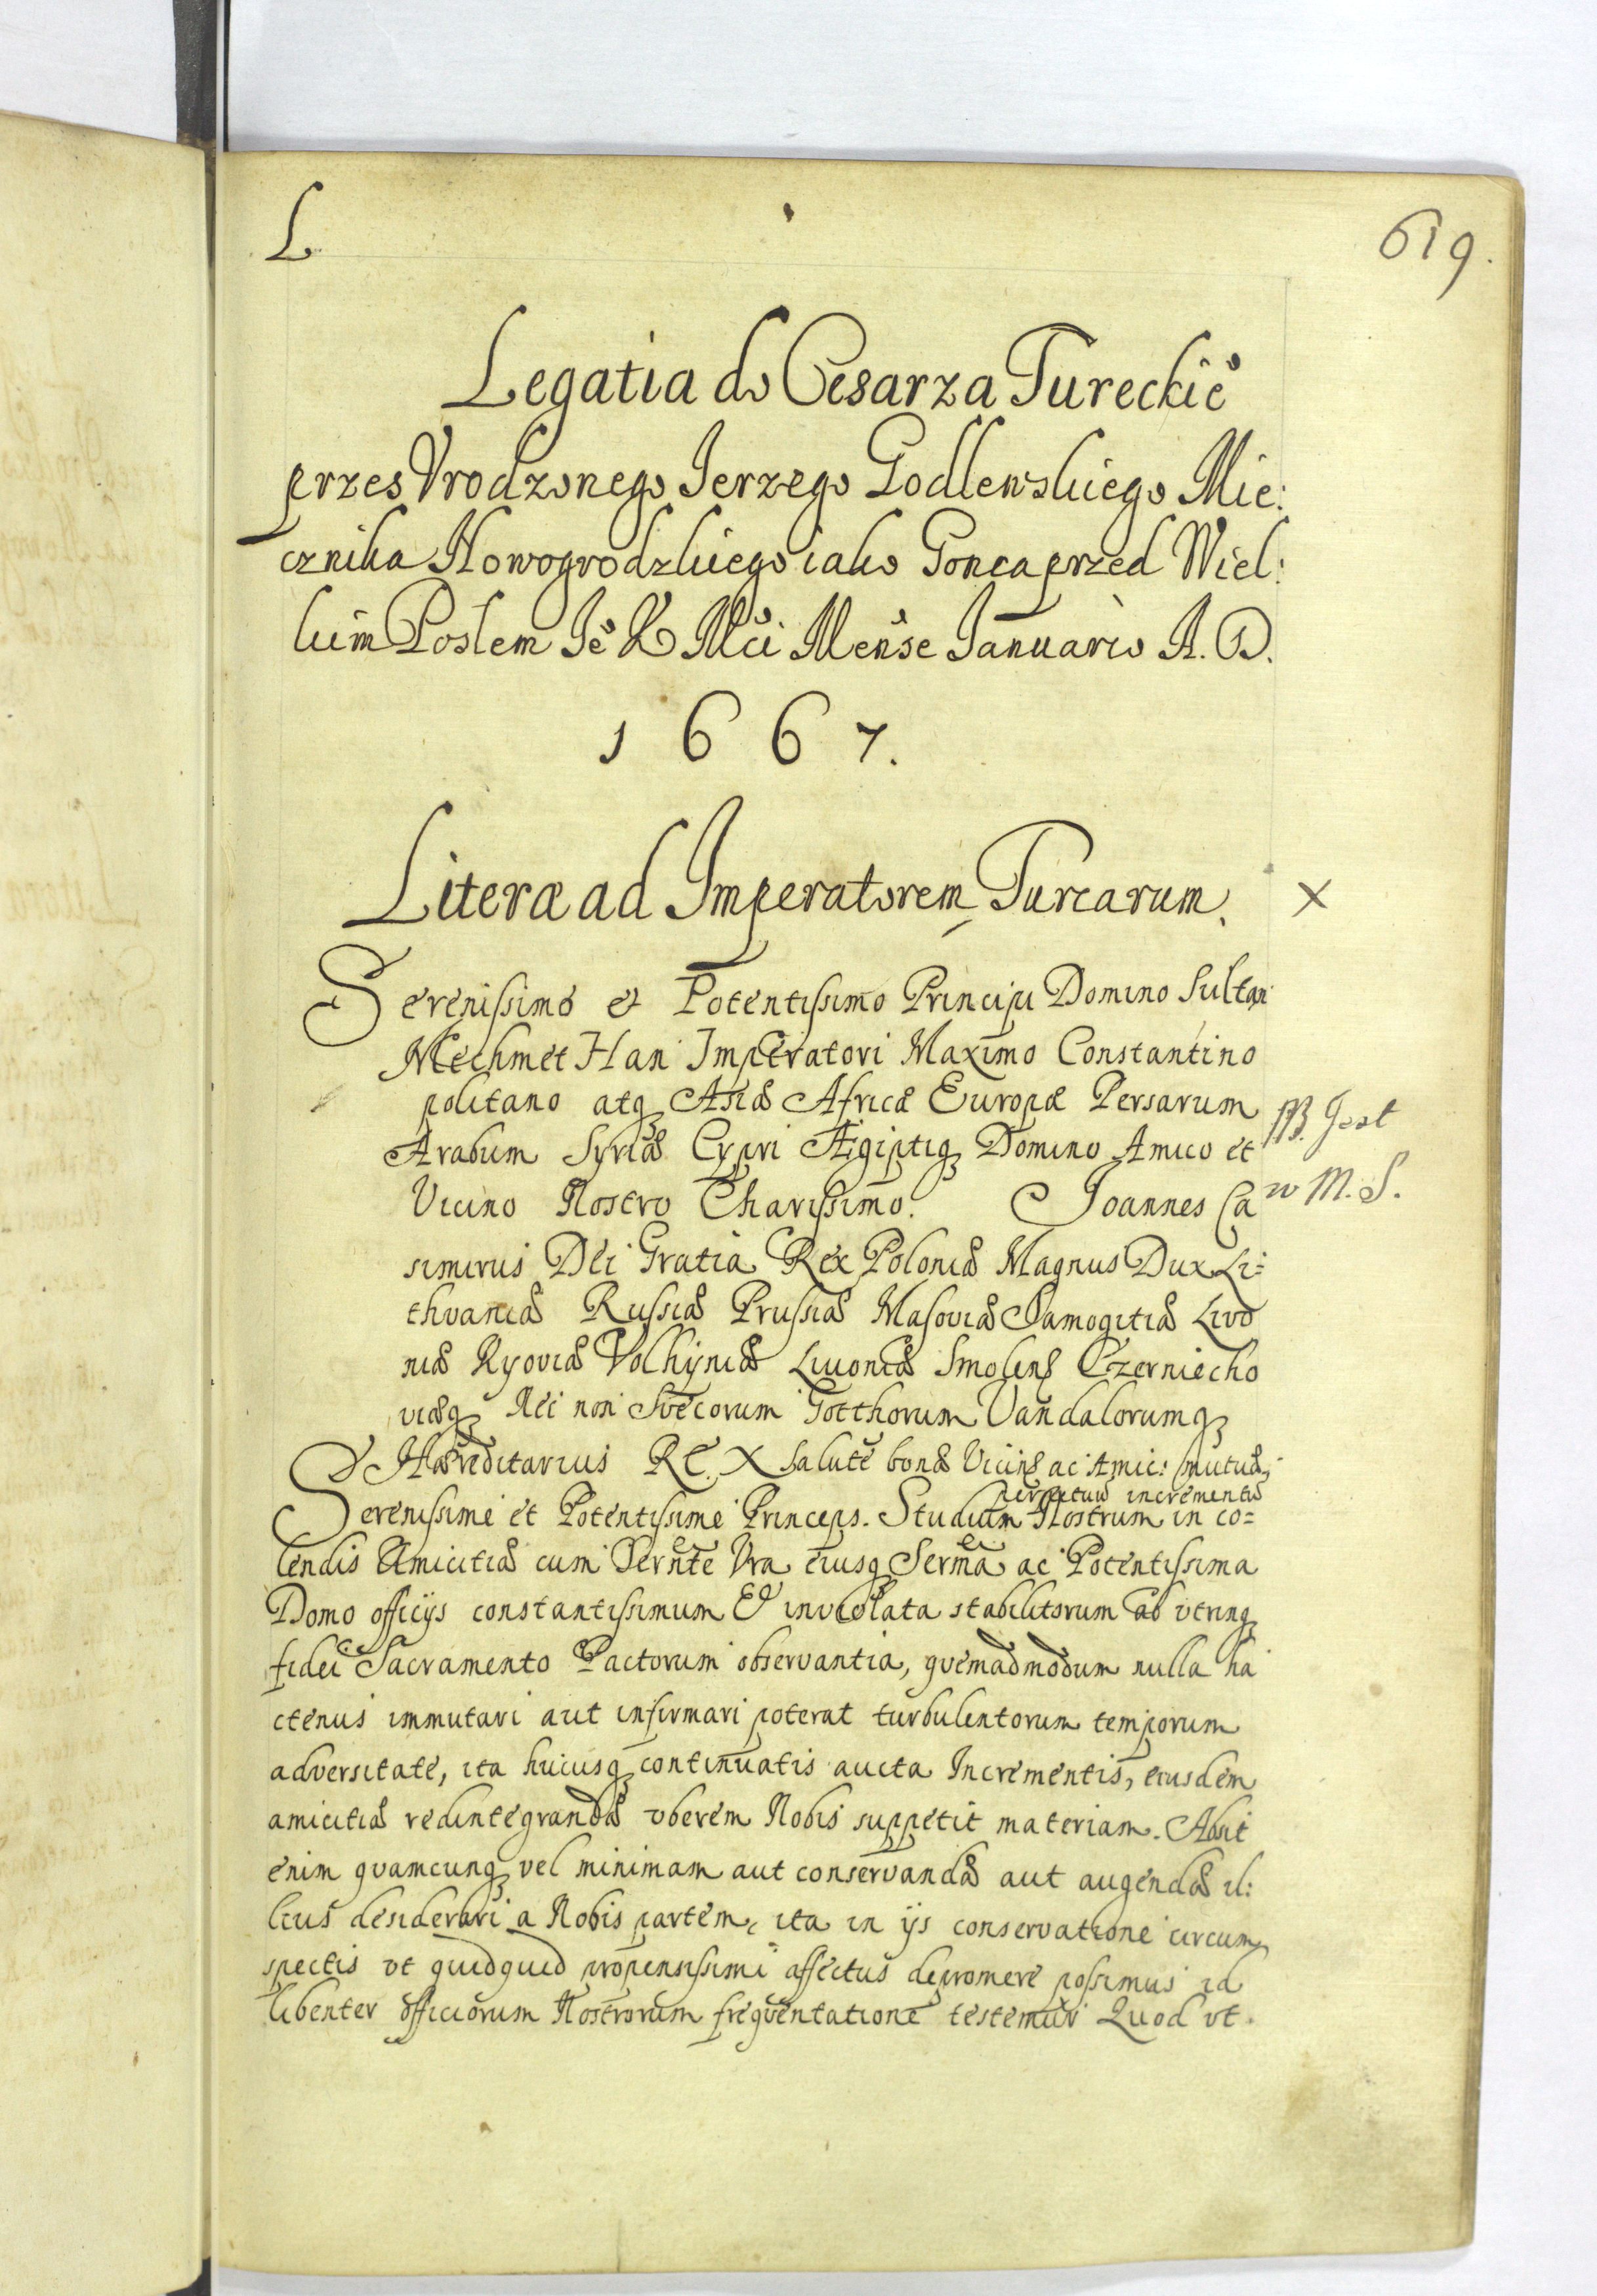 L
619.
Legatia do Cesarza Tureckiė
przes Vrodzonego Jerzego Godlewskiego Mie:
cznika Nowogrodzkiego iako Gonca przed Wiel:
kim Posłem Jė K Mći Mense Januario A. D.
1667.
Literæ ad Imperatorem Turcarum. X
Serenissimo et Potentissimo Principi Domino Sultan
Mechmet Han Imperatori Maximo Constantino
politano atq Asiæ Africæ Europæ Persarum
Arabum Syriæ Cypri Ægiptiq Domino Amico et
Vicino Nostro Charissimo. Joannes Ca
NB. Jest
w M. S.
simirus Dei Gratia Rex Poloniæ Magnus Dux Li=
thvaniæ Russiæ Prussiæ Masoviæ Samogitiæ Livo
niæ Kyoviæ Volhyniæ Livoniæ Smolens Czerniecho
viæq Nec non Svecorum Gotthorum Vandalorumq
Hæreditarius REX Salutē bonæ Vicinæ ac Amic: mutuæ
perpetuū incrementū
Serenissime et Potentissime Princeps. Studium Nostrum in co=
lendis Amicitiæ cum Sernte Vra eiusq Serma ac Potentissima
Domo officijs constantissimum et inviolata stabilitorum ab vtrinq
fidei Sacramento Pactorum observantia, qvemadmodum nulla ha
ctenus immutari aut infirmari poterat turbulentorum temporum
adversitate, ita hucusq continuatis aucta Incrementis, eiusdem
amicitiæ redintegrandæ vberem Nobis suppetit materiam. Absit
enim qvamcunq vel minimam aut conservandæ aut augendæ il:
lius desiderari a Nobis partem, ita in ijs conservatione circum
spectis vt quidquid propensissimi affectus depromere possimus id
libenter officiorum Nostrorum freqventatione testemur Quod vt